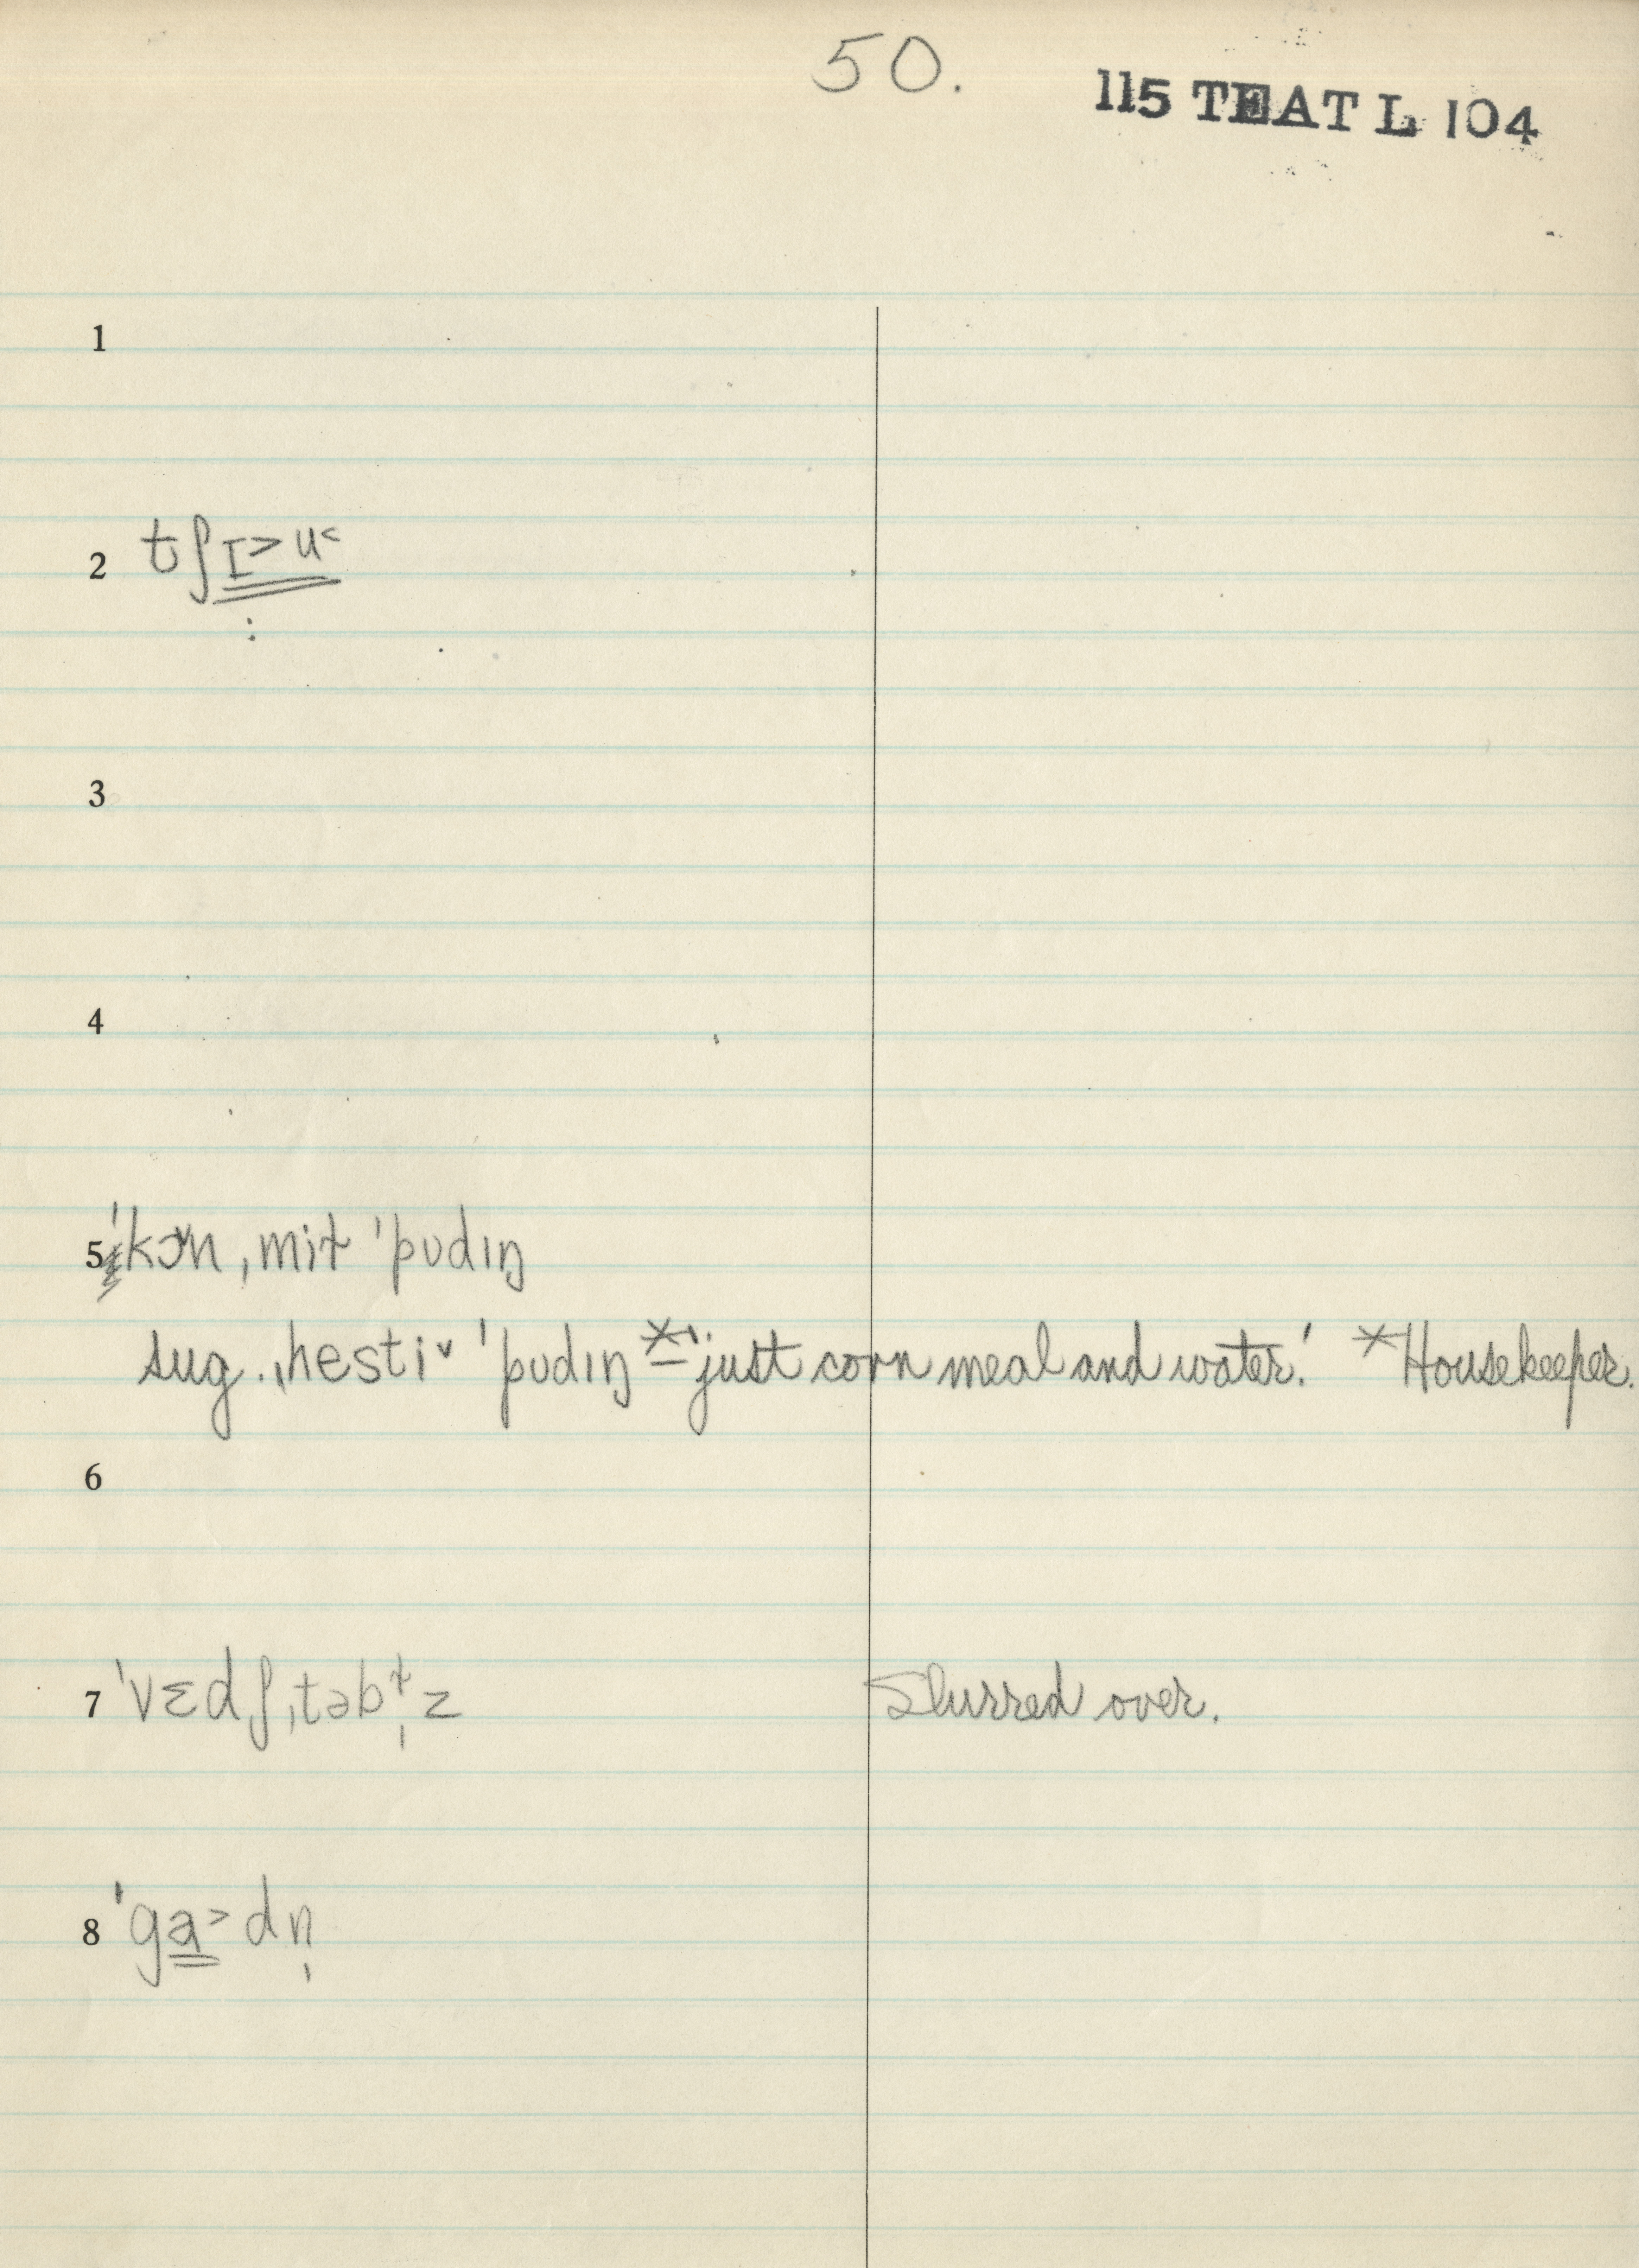 50.
115 TEAT L 104
1
2 tʃɪ˃u˂
3
4
5 ˈkɔ˞n ˌmiɫ ˈpʊdɪŋ
sug. ˌhesti˅ ˈpʊdɪŋ * – 'just corn meal and water.' *Housekeeper.
6
7 ˈvɛdʃˌtəbɫ̩z Slurred over.
8 ˈga˃dn̩